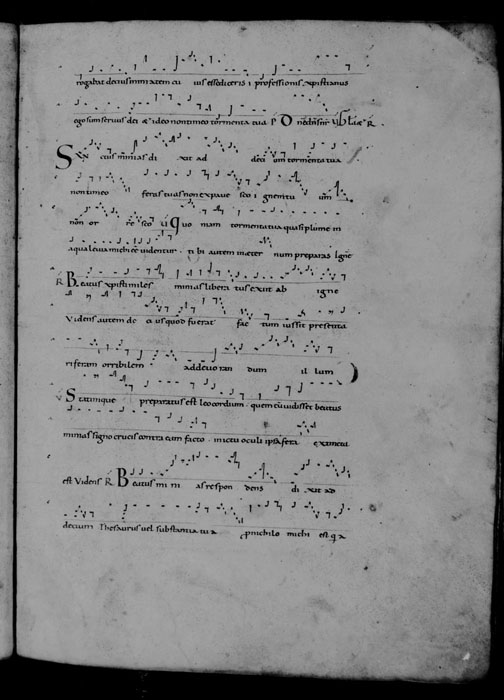 rogabat decius miniatem cu ius esse diceris i professionis xpistianus
ego sum servus dei & ideo non timeo tormenta tua P D
S decius minias di xit ad deci um tormenta tua
non timeo feras tuas non expave sco igne tu um
non or re sco V Quo niam tormenta tua quasi plume in
aqua leva michi videntur ti bi autem in eter num preparas igne
R Beatus xpisti miles minias libera tus exiit ab igne
Videns autem de ci us quod fuerat fac tum iussit presenta
ri feram orribilem ad devo ran dum il lum
V Statimque preparatus est leo cordium quem cu vidisset beatus
minias signo crucis contra eam facto in ictu oculi ipsa fera extincta
est Videns R Beatus mi ni as respon dens di xit ad
decium Thesaurus vel substantia tu a pnichilo michi est q a